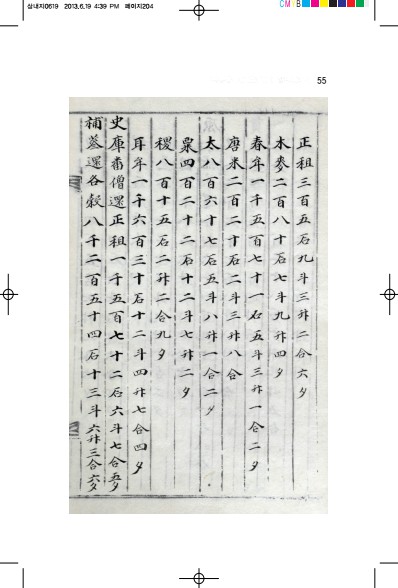 삼내지0619 2013.6.19 4:39 PM 페이지204
CM B
55
正租三百五石九斗三升二合六夕
木麥二百八十石七斗九升四夕
春牟一千五百七十一石五斗三升一合二夕
唐米二百二十石二斗三升八合
太八百六十七石五斗八升一合二夕
粟四百二十二石十二斗七升二夕
稷八百十五石二升二合九夕
耳牟一千六百三十石十二斗四升七合四夕
史庫番僧還正租一千五百七十二石六斗七合五夕
補蔘還各穀八千二百五十四石十三斗六升三合六夕